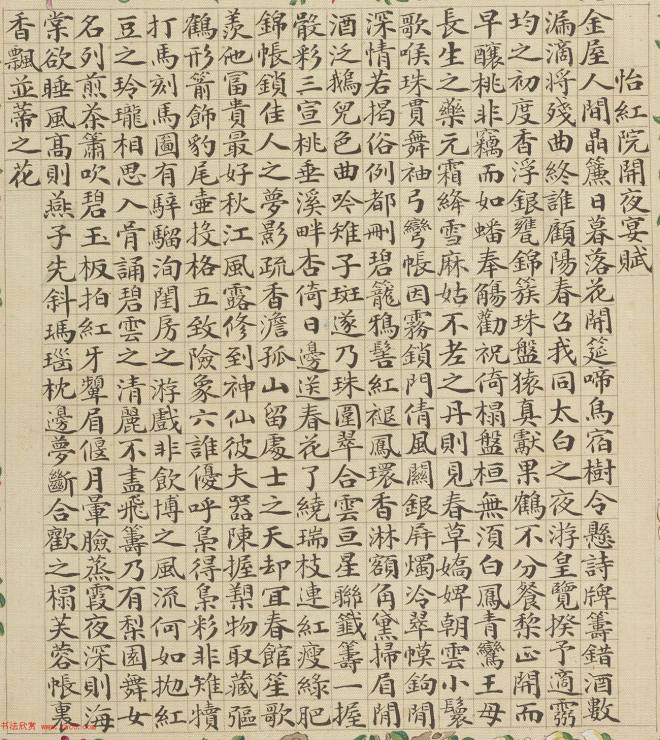 怡紅院開夜宴賦
金屋人間晶簾日暮落花開筵啼鳥宿樹令懸詩牌籌錯酒數
漏滴將殘曲終誰顧陽春召我同太白之夜游皇覽揆予適靈
均之初度香浮銀甕錦簇珠盤猿真獻果鶴不分餐黎正開而
早釀桃非竊而如蟠奉觴勸祝倚榻盤桓無須白鳳青鸞王母
長生之藥元霜絳雪麻姑不老之丹則見春草嬌婢朝雲小鬟
歌喉珠貫舞袖弓彎帳因霧鎖門倩風關銀屏燭冷翠幙鉤閒
深情若揭俗例都刪碧籠鴉髻紅褪鳳環香淋額角黛掃眉間
酒泛鵝兒色曲吟雉子斑遂乃珠圍翠合雲亘星聯籤籌一握
骰彩三宣桃垂溪畔杏倚日邊送春花了繞瑞枝連紅瘦綠肥
錦帳鎖佳人之夢影疏香澹孤山留處士之天却宜春館笙歌
羨他富貴最好秋江風露修到神仙彼夫器陳握槊物取藏彄
鶴形箭飾豹尾壺投格五致險象六誰優呼梟得梟彩非雉犢
打馬刻馬圖有騂騮洵閨房之游戲非飲博之風流何如拋紅
豆之玲瓏相思入骨誦碧雲之清麗不盡飛籌乃有梨園舞女
名列煎茶簫吹碧玉板拍紅牙顰眉偃月暈臉蒸霞夜深則海
棠欲睡風高則燕子先斜瑪瑙枕邊夢斷合歡之榻芙蓉帳裏
香飄並蒂之花
书法欣赏